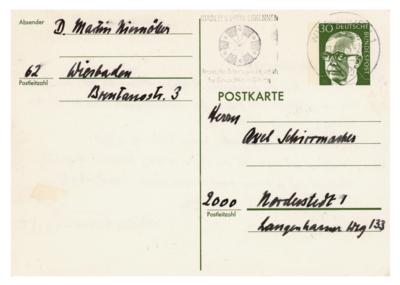 Absender
D. Martin Niemöller
62 Wiesbaden
Postleitzahl
Brentanostr. 3
30 DEUTSCHE BUNDESPOST
POSTKARTE
Herrn
Axel Schirrmacher
2000 Norderstedt 1
Postleitzahl
Langenharmer Weg 133